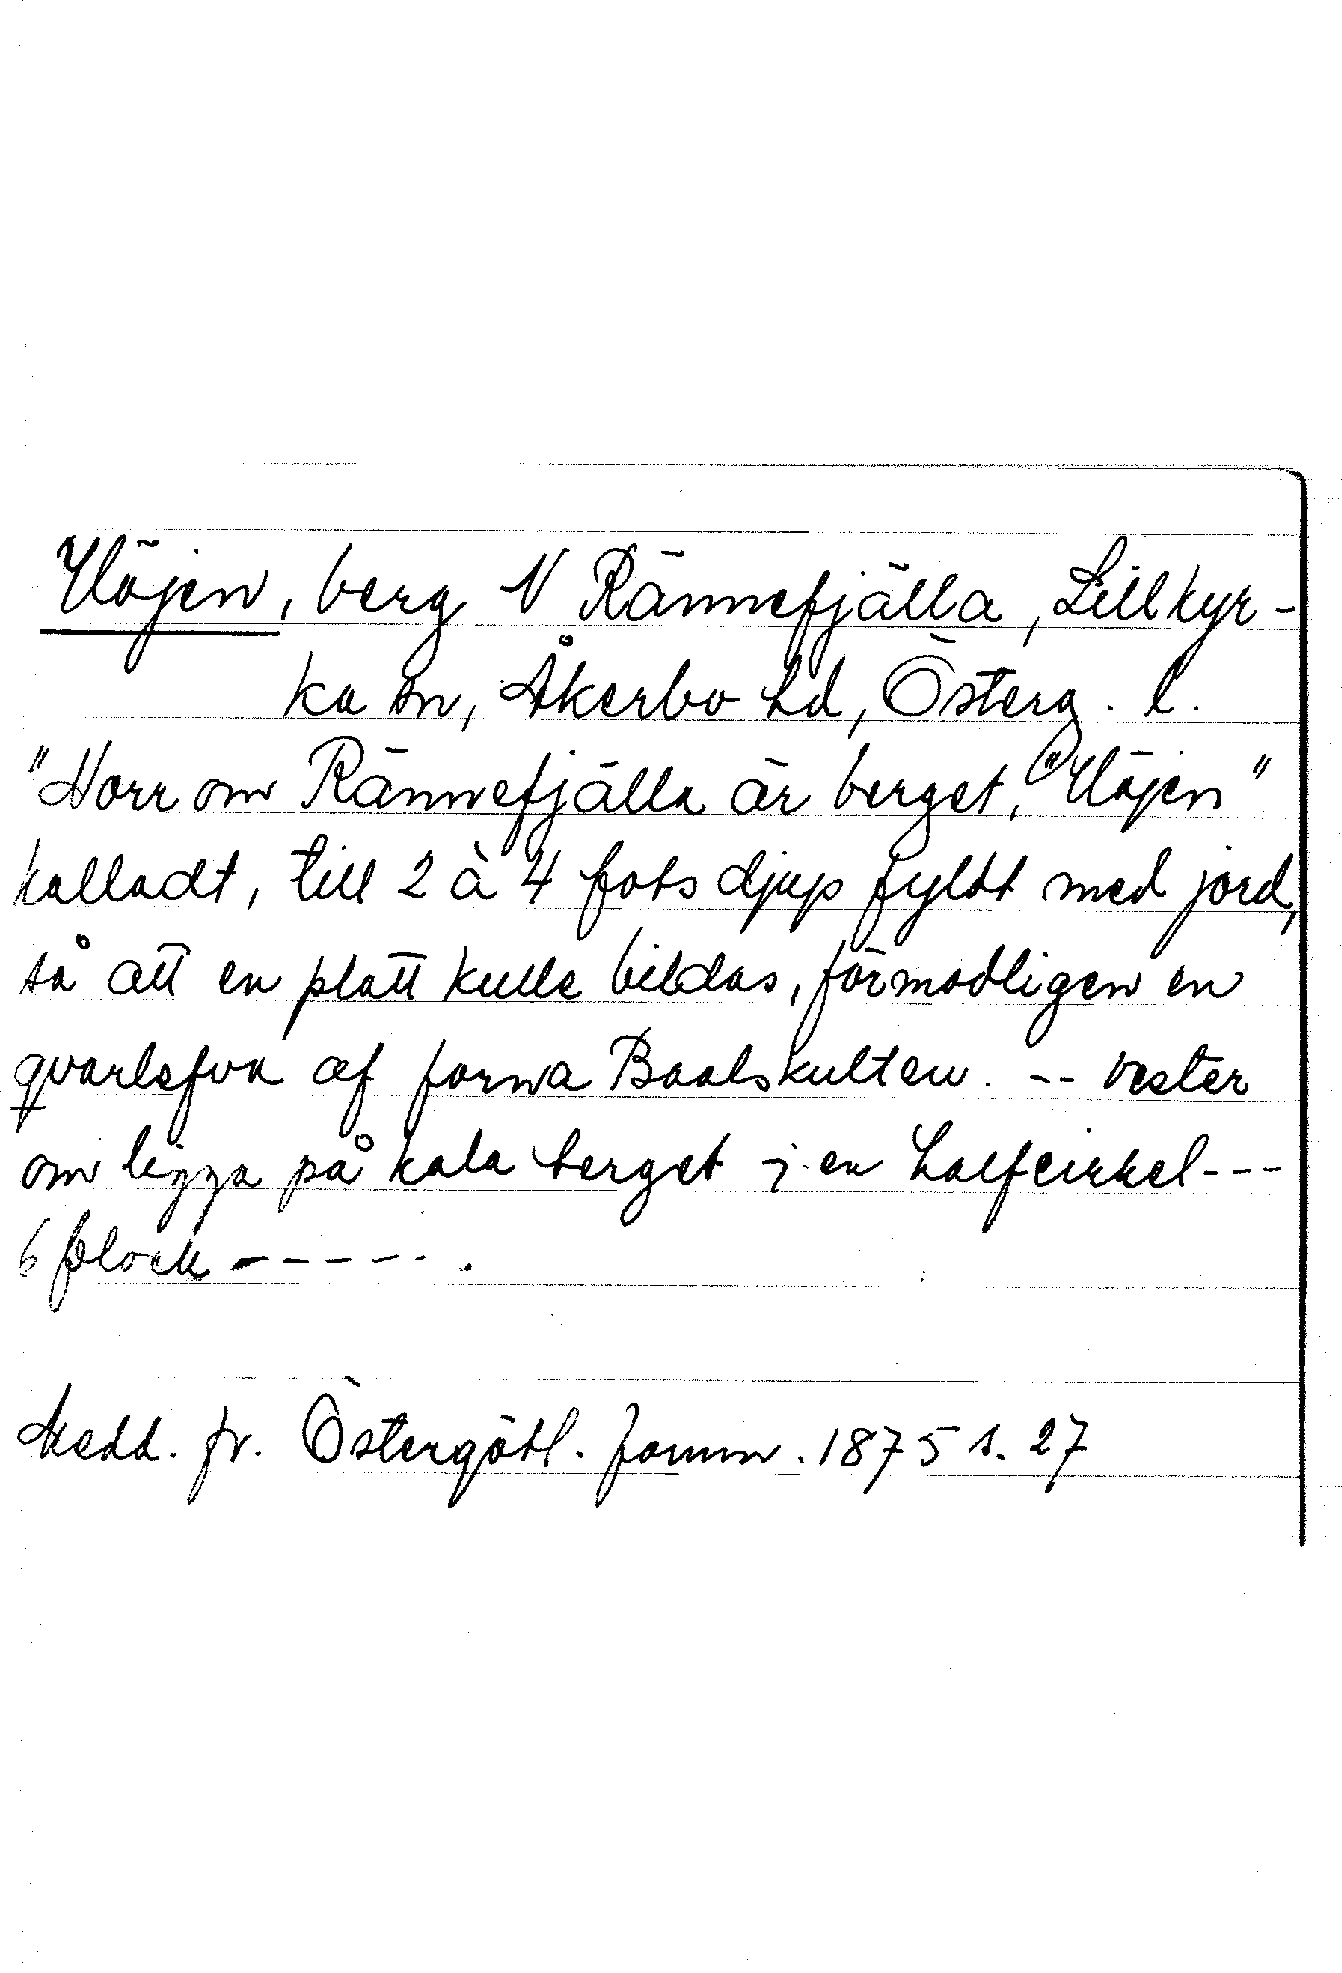 Höjen, berg N Rännefjälla, Lillkyr-
ka sn, Åkerbo hd, Österg. l.
"Norr om Rännefjälla är berget, "Höjen"
kalladt, till 2 à 4 fots djup fyldt med jord,
så att en platt kulle bildas, förmodligen en
qvarlefva af forna Baalskulten. -- vester
om ligga på kala berget i en halfcirkel---
6 block ------.
Medd. fr. Östergötl. fornm. 1875 s. 27